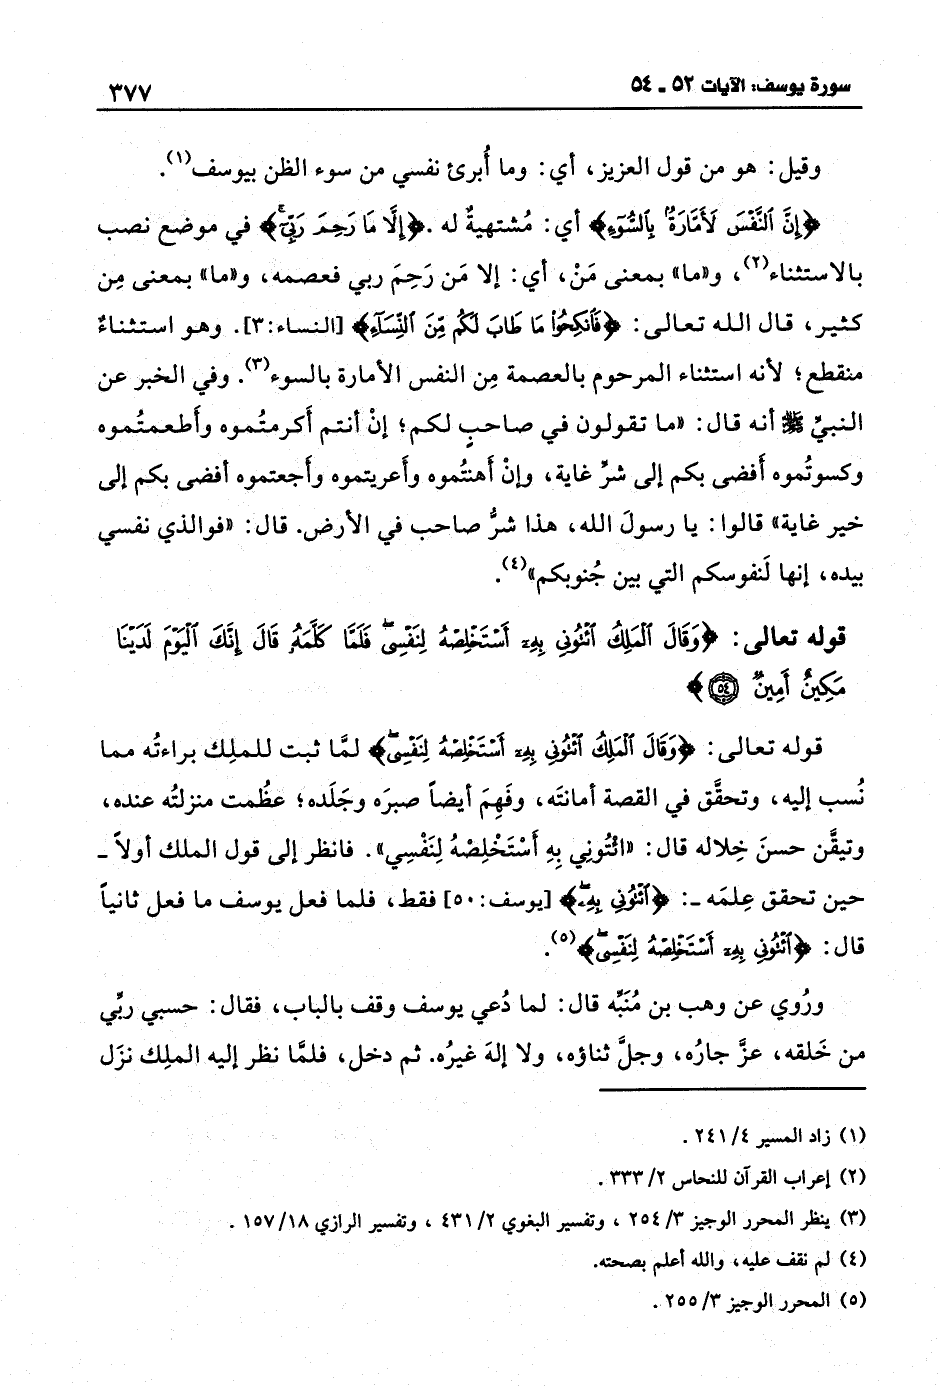 سورة يوسف: الآيات ٥٢ ـ ٥٤
٣٧٧
وقيل: هو من قول العزيز، أي: وما أُبرئ نفسي من سوء الظن بيوسف(١).
﴿إِنَّ ٱلنَّفْسَ لَأَمَّارَةٌۢ بِٱلسُّوٓءِ﴾ أي: مُشتهيةٌ له. ﴿إِلَّا مَا رَحِمَ رَبِّيٓۚ﴾ في موضع نصب
بالاستثناء(٢)، و«ما» بمعنى مَنْ، أي: إلا مَن رَحِمَ ربي فعصمه، و«ما» بمعنى مِن
كثير، قال الله تعالى: ﴿فَٱنكِحُوا۟ مَا طَابَ لَكُم مِّنَ ٱلنِّسَآءِ﴾ [النساء:٣]. وهو استثناءٌ
منقطع؛ لأنه استثناء المرحوم بالعصمة مِن النفس الأمارة بالسوء(٣). وفي الخبر عن
النبيِّ ﷺ أنه قال: «ما تقولون في صاحبٍ لكم؛ إنْ أنتم أكرمتُموه وأَطعمتُموه
وكسوتُموه أَفضى بكم إلى شرِّ غاية، وإنْ أهنتُموه وأَعريتموه وأجعتموه أفضى بكم إلى
خير غاية» قالوا: يا رسولَ الله، هذا شرُّ صاحب في الأرض. قال: «فوالذي نفسي
بيده، إنها لَنفوسكم التي بين جُنوبكم»(٤).
قوله تعالى: ﴿وَقَالَ ٱلْمَلِكُ ٱئْتُونِى بِهِۦٓ أَسْتَخْلِصْهُ لِنَفْسِىۖ فَلَمَّا كَلَّمَهُۥ قَالَ إِنَّكَ ٱلْيَوْمَ لَدَيْنَا
مَكِينٌ أَمِينٌ ٥٤﴾
قوله تعالى: ﴿وَقَالَ ٱلْمَلِكُ ٱئْتُونِى بِهِۦٓ أَسْتَخْلِصْهُ لِنَفْسِىۖ﴾ لمَّا ثبت للملِك براءتُه مما
نُسب إليه، وتحقَّق في القصة أمانتَه، وفَهِمَ أيضاً صبرَه وجَلَده؛ عظُمت منزلتُه عنده،
وتيقَّن حسنَ خِلاله قال: «ائْتُونِي بِهِ أَسْتَخْلِصْهُ لِنَفْسِي». فانظر إلى قول الملك أولاً ـ
حين تحقق عِلمَه ـ: ﴿ٱئْتُونِى بِهِۦۖ﴾ [يوسف:٥٠] فقط، فلما فعل يوسف ما فعل ثانياً
قال: ﴿ٱئْتُونِى بِهِۦٓ أَسْتَخْلِصْهُ لِنَفْسِىۖ﴾(٥).
ورُوي عن وهب بن مُنَبِّه قال: لما دُعي يوسف وقف بالباب، فقال: حسبي ربِّي
من خَلقه، عزَّ جارُه، وجلَّ ثناؤه، ولا إلهَ غيرُه. ثم دخل، فلمَّا نظر إليه الملِك نزَل
(١) زاد المسير ٤/ ٢٤١ .
(٢) إعراب القرآن للنحاس ٢/ ٣٣٣ .
(٣) ينظر المحرر الوجيز ٣/ ٢٥٤ ، وتفسير البغوي ٢/ ٤٣١ ، وتفسير الرازي ١٨/ ١٥٧ .
(٤) لم نقف عليه، والله أعلم بصحته.
(٥) المحرر الوجيز ٣/ ٢٥٥ .